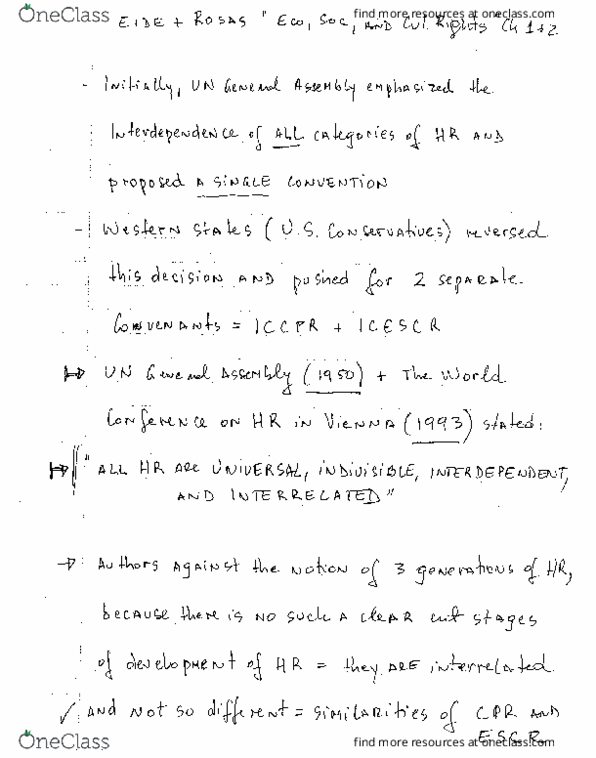 OneClass
find more resources at oneclass.com
EIDE + ROSAS " ECO, SOC, AND CUL. Rights Ch 1+2.
- INITIALLY, UN General Assembly emphasized the
INTERDEPENDENCE of ALL CATEGORIES of HR AND
proposed A SINGLE CONVENTION
- WESTERN STATES (U.S. CONSERVATIVES) reversed
this decision AND pushed for 2 separate.
CONVENANTS = ICCPR + ICESCR
UN General Assembly (1950) + The World
Conference on HR in Vienna (1993) stated:
" ALL HR ARE UNIVERSAL, INDIVISIBLE, INTERDEPENDENT,
AND INTERRELATED"
→ Authors Against the notion of 3 generations of HR,
because there is no such a clear cut stages
of development of HR = they ARE interrelated.
✓ AND NOT so different = similarities of CPR AND
ESCR
OneClass
find more resources at oneclass.com